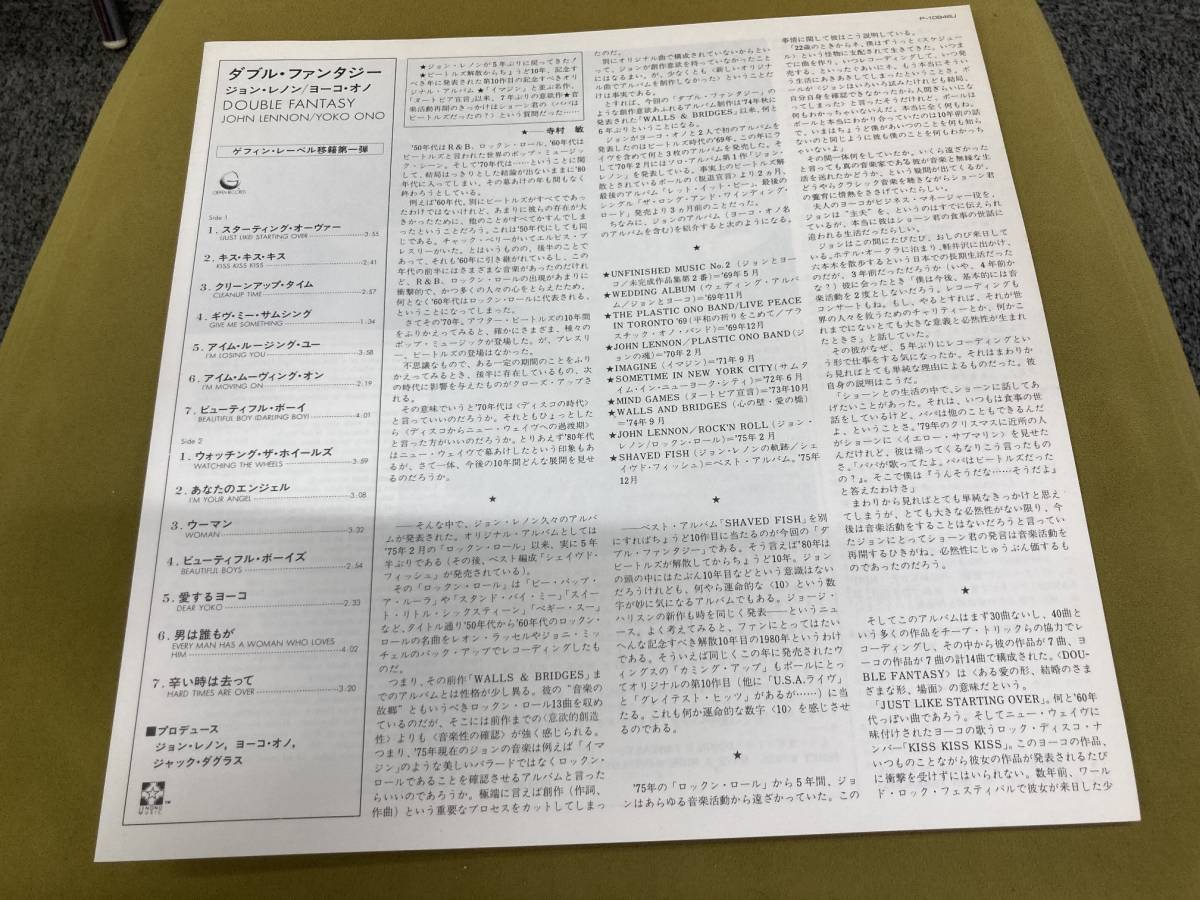 P-10948J
ダブル・ファンタジー
ジョン・レノン/ヨーコ・オノ
DOUBLE FANTASY
JOHN LENNON/YOKO ONO
ゲフィン・レーベル移籍第一弾
GEFFEN RECORDS
Side 1
1. スターティング・オーヴァー
(JUST LIKE) STARTING OVER 3:55
2. キス・キス・キス
KISS KISS KISS 2:41
3. クリーンアップ・タイム
CLEANUP TIME 2:57
4. ギヴ・ミー・サムシング
GIVE ME SOMETHING 1:34
5. アイム・ルージング・ユー
I'M LOSING YOU 3:58
6. アイム・ムーヴィング・オン
I'M MOVING ON 2:19
7. ビューティフル・ボーイ
BEAUTIFUL BOY (DARLING BOY) 4:01
Side 2
1. ウォッチング・ザ・ホイールズ
WATCHING THE WHEELS 3:59
2. あなたのエンジェル
I'M YOUR ANGEL 3:08
3. ウーマン
WOMAN 3:32
4. ビューティフル・ボーイズ
BEAUTIFUL BOYS 2:54
5. 愛するヨーコ
DEAR YOKO 2:33
6. 男は誰もが
EVERY MAN HAS A WOMAN WHO LOVES
HIM 4:02
7. 辛い時は去って
HARD TIMES ARE OVER 3:20
■プロデュース
ジョン・レノン, ヨーコ・オノ,
ジャック・ダグラス
LENONO
MUSIC
★ジョン・レノンが5年ぶりに戻ってきた!
★ビートルズ解散からちょうど10年、記念す
べき年に発表された第10作目の記念すべきオリ
ジナル・アルバム★「イマジン」と並ぶ名作、
「ヌートピア宣言」以来、7年ぶりの意欲作★音
楽活動再開のきっかけはショーン君の〈パパは
ビートルズだったの?〉という質問だった……
★──寺村 敏
'50年代はR&B、ロックン・ロール。'60年代は
ビートルズと言われた世界のポップ・ミュージッ
ク・シーン。そして'70年代は……ということに関
して、結局はっきりとした結論が出ないままに'80
年代に入ってしまい、その幕あけの年も間もなく
終わろうとしている。
例えば'60年代、別にビートルズがすべてであっ
たわけではないけれど、あまりに彼らの存在が大
きかったために、他のことがすべてかすんでしま
ったということだろう。これは'50年代にしても同
じである。チャック・ベリーがいてエルビス・プ
レスリーがいた。とはいうものの、後半のことで
あって、それも'60年に引き継がれているし、この
年代の前半にはさまざまな音楽があったのだけれ
ど、R&B、ロックン・ロールの出現があまりに
衝撃的で、かつ多くの人々の心をとらえたため、
何となく'60年代はロックン・ロールに代表される、
ということになってしまった。
さてその'70年。アフター・ビートルズの10年間
をふりかえってみると、確かにさまざま、種々の
ポップ・ミュージックが登場した。が、プレスリ
ー、ビートルズの登場はなかった。
不思議なもので、ある一定の期間のことをふり
かえってみるとき、後半に存在しているもの、次
の時代に影響を与えたものがクローズ・アップさ
れる。
その意味でいうと'70年代は〈ディスコの時代〉
と言っていいのだろうか。それともひょっとした
ら〈ディスコからニュー・ウェイヴへの過渡期〉
と言った方がいいのだろうか。とりあえず'80年代
はニュー・ウェイヴで幕あけしたという印象もあ
るが、さて一体、今後の10年間どんな展開を見せ
るのだろうか。
★
──そんな中で、ジョン・レノン久々のアルバ
ムが発表された。オリジナル・アルバムとしては
'75年2月の「ロックン・ロール」以来、実に5年
半ぶりである(その後、ベスト編成「シェイヴド・
フィッシュ」が発売されている)。
その「ロックン・ロール」は「ビー・バップ・
ア・ルーラ」や「スタンド・バイ・ミー」「スイー
ト・リトル・シックスティーン」「ペギー・スー」
など、タイトル通り'50年代から'60年代のロックン・
ロールの名曲をレオン・ラッセルやジョニ・ミッ
チェルのバック・アップでレコーディングしたも
のだ。
つまり、その前作「WALLS & BRIDGES」ま
でのアルバムとは性格が少し異る。彼の“音楽の
故郷”ともいうべきロックン・ロール13曲を収め
ているのだが、そこには前作までの〈意欲的創造
性〉よりも〈音楽性の確認〉が強く感じられる。
つまり、'75年現在のジョンの音楽は例えば「イマ
ジン」のような美しいバラードではなくロックン・
ロールであることを確認させるアルバムと言った
らいいのであろうか。極端に言えば創作(作詞、
作曲)という重要なプロセスをカットしてしまっ
たのだ。
別にオリジナル曲で構成されていないからとい
って、ジョンが創作意欲を持っていなかったこと
にはなるまい。が、少なくとも〈新しいオリジナ
ル曲でアルバムを制作しなかった〉ということだ
けは事実である。
とすれば、今回の「ダブル・ファンタジー」の
ような創作意欲あふれるアルバム制作は'74年秋に
発表された「WALLS & BRIDGES」以来、何と
6年ぶりということになる。
ジョンがヨーコ・オノと2人で初のアルバムを
発表したのはビートルズ時代の'69年。この年にラ
イヴを含めて何と3枚のアルバムを発売した。そ
して'70年2月にはソロ・アルバム第1作「ジョン・
レノン」を発売している。事実上のビートルズ解
散とされているポールの〈脱退宣言〉より2ヵ月、
最後のアルバム「レット・イット・ビー」、最後の
シングル「ザ・ロング・アンド・ワインディング・
ロード」発売より3ヵ月前のことだった。
ちなみに、ジョンのアルバム(ヨーコ・オノ名
のアルバムを含む)を紹介すると次のようになる。
★
★UNFINISHED MUSIC No.2(ジョンとヨー
コ/未完成作品集第2番)='69年5月
★WEDDING ALBUM(ウェディング・アルバ
ム/ジョンとヨーコ)='69年11月
★THE PLASTIC ONO BAND/LIVE PEACE
IN TORONTO '69(平和の祈りをこめて/プラ
スチック・オノ・バンド)='69年12月
★JOHN LENNON/PLASTIC ONO BAND(ジ
ョンの魂)='70年2月
★IMAGINE(イマジン)='71年9月
★SOMETIME IN NEW YORK CITY(サムタ
イム・イン・ニューヨーク・シティ)='72年6月
★MIND GAMES(ヌートピア宣言)='73年10月
★WALLS AND BRIDGES(心の壁・愛の橋)
='74年9月
★JOHN LENNON/ROCK'N ROLL(ジョン・
レノン/ロックン・ロール)='75年2月
★SHAVED FISH(ジョン・レノンの軌跡/シェ
イヴド・フィッシュ)=ベスト・アルバム。'75年
12月
★
──ベスト・アルバム「SHAVED FISH」を別
にすればちょうど10作目に当たるのが今回の「ダ
ブル・ファンタジー」である。そう言えば'80年は
ビートルズが解散してからちょうど10年。ジョン
の頭の中にはたぶん10年目などという意識はない
だろうけれども、何やら運命的な〈10〉という数
字が妙に気になるアルバムでもある。ジョージ・
ハリスンの新作も時を同じく発表──というニュ
ース。よく考えてみると、ファンにとってはたい
へんな記念すべき解散10年目の1980年というわけ
である。そういえば同じくこの年に発売されたウ
ィングスの「カミング・アップ」もポールにとっ
てオリジナルの第10作目(他に「U.S.A.ライヴ」
と「グレイテスト・ヒッツ」があるが……)に当
たる。これも何か運命的な数字〈10〉を感じさせ
るのである。
★
'75年の「ロックン・ロール」から5年間、ジョ
ンはあらゆる音楽活動から遠ざかっていた。この
事情に関して彼はこう説明している。
「22歳のときからネ、僕はずうっと〈スケジュー
ル〉という怪物に支配されて生きてきた。いつま
でに曲を作り、いつレコーディングして、いつ発
売する、といったぐあいにネ。もう本当にそうい
う生活にあきあきしてしまったということさ。ポ
ールが〈ジョンはいろいろ試みたけれども結局、
自分自身を確認できなかったから人間ぎらいにな
ってしまった〉と言ったそうだけれど、ポールは
何もわかっちゃいないんだ。本当に全く何もね。
ポールと本当にわかり合っていたのは10年前の話
で、いまはちょうど僕があいつのことを何も知ら
ないのと同じように彼も僕のことを何もわかっち
ゃいないよ」
その間一体何をしていたか。いくら遠ざかった
と言っても真の音楽家である彼が音楽と無縁な生
活を送れたかどうか、という疑問が出てくるが、
どうやらクラシック音楽を聴きながらショーン君
の養育に情熱をささげていたらしい。
夫人のヨーコがビジネス・マネージャー役を、
ジョンは“主夫”を、というのはすでに伝えられ
ているが、本当に彼はショーン君の食事の世話に
追われる生活だったらしい。
ジョンはこの間にたびたび、おしのび来日して
いる。ホテル・オークラに泊まり、軽井沢に出かけ、
六本木を散歩するという日本での長期生活だった
のだが、3年前だっただろうか(いや、4年前か
な?)彼に会ったとき「僕は今後、基本的には音
楽活動を2度としないだろう。レコーディングも
コンサートもね。もし、やるとすれば、それが世
界の人々を救うためのチャリティーとか、何かこ
れまでにないとても大きな意義と必然性が生まれ
たときさ」と話していた。
その彼がなぜ、5年ぶりにレコーディングとい
う形で仕事をする気になったか。それはまわりか
ら見ればとても単純な理由によるものだった。彼
自身の説明はこうだ。
「ショーンとの生活の中で、ショーンに話してあ
げたいことがあった。それは、いつもは食事の世
話をしているけど、パパは他のこともできるんだ
よ、ということさ。'79年のクリスマスに近所の人
がショーンに〈イエロー・サブマリン〉を見せた
んだけれど、彼は帰ってくるなりこう言ったもの
さ。『パパが歌ってたよ。パパはビートルズだった
の?』。そこで僕は『うんそうだな……そうだよ』
と答えたわけさ」
まわりから見ればとても単純なきっかけと思え
てしまうが、とても大きな必然性がない限り、今
後は音楽活動をすることはないだろうと言ってい
たジョンにとってショーン君の発言は音楽活動を
再開するひきがね、必然性にじゅうぶん価するも
のであったのだろう。
★
そしてこのアルバムはまず30曲ないし、40曲と
いう多くの作品をチープ・トリックらの協力でレ
コーディングし、その中から彼の作品が7曲、ヨ
ーコの作品が7曲の計14曲で構成された。〈DOU-
BLE FANTASY〉は〈ある愛の形、結婚のさま
ざまな形、場面〉の意味だという。
「JUST LIKE STARTING OVER」。何と'60年
代っぽい曲であろう。そしてニュー・ウェイヴに
味付けされたヨーコの歌うロック・ディスコ・ナ
ンバー「KISS KISS KISS」。このヨーコの作品が、
いつものことながら彼女の作品が発表されるたび
に衝撃を受けずにはいられない。数年前、ワール
ド・ロック・フェスティバルで彼女が来日した少